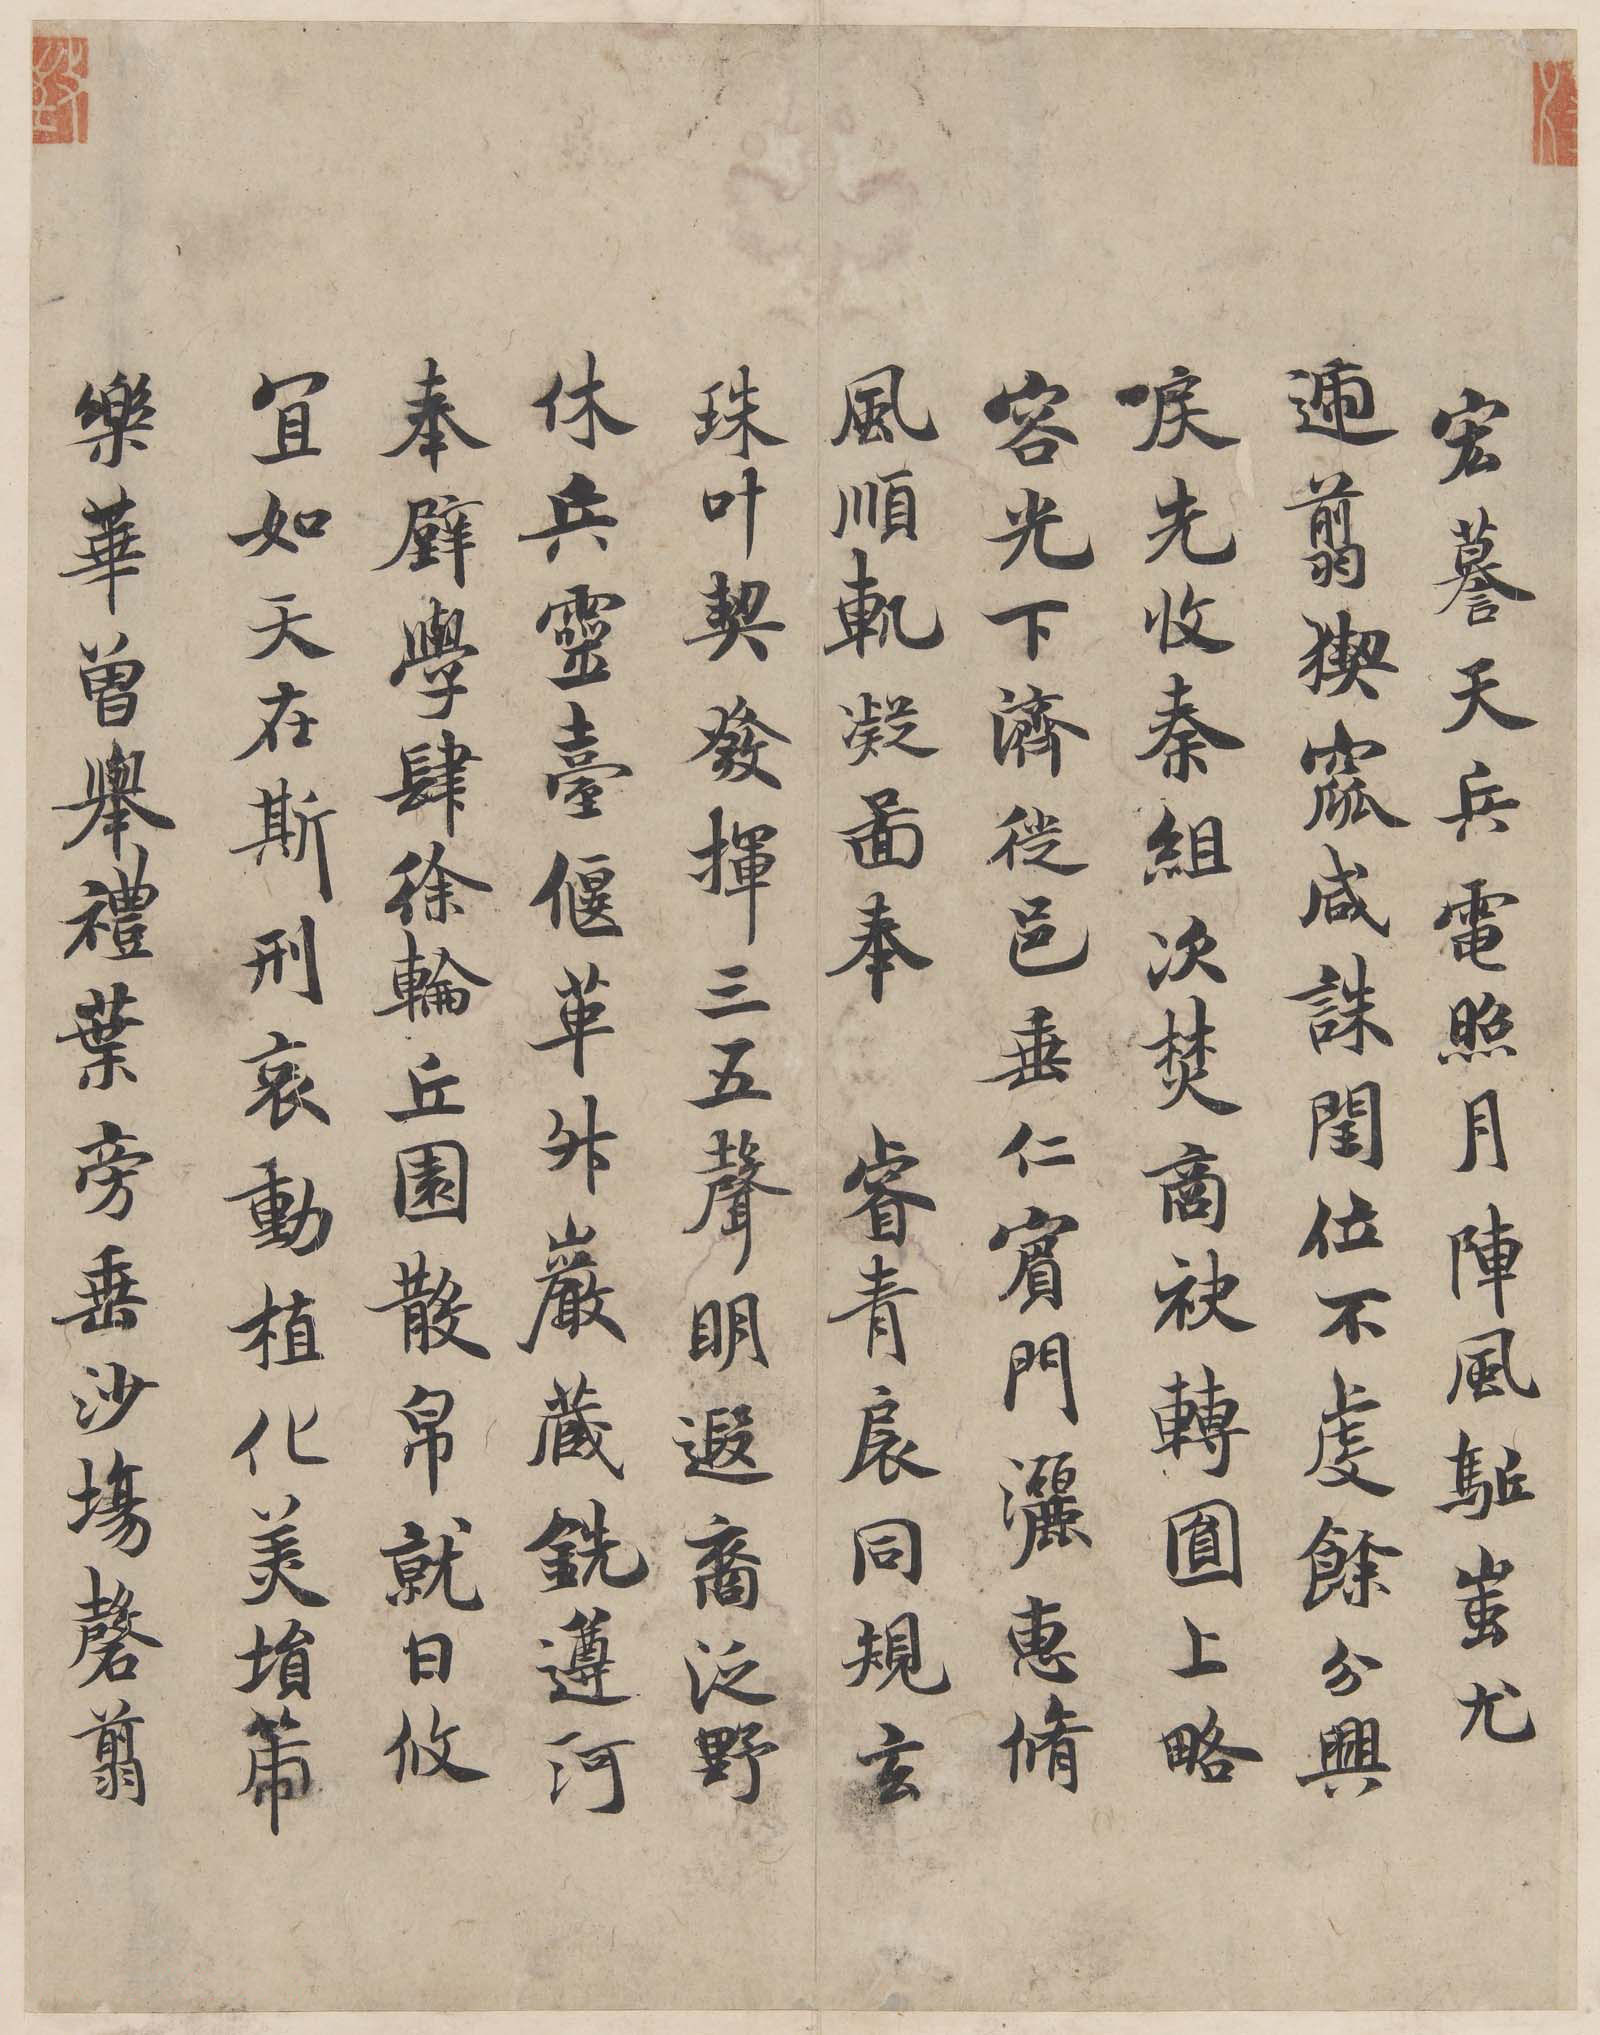 宏謩天兵電照月陣風駈蚩尤
逓翦猰窳咸誅閏位不虔餘分興
唳先收秦組次焚商袂轉圓上略
容光下濟從邑垂仁賓門灑惠脩
風順軌凝圖奉 睿青扆同規玄
珠叶契發揮三五聲明遐裔泛野
休兵靈臺偃革升巖蔵銑遵河
奉璧學肆徐輪丘園散帛就日攸
宜如天在斯刑哀動植化美埍箒
樂華曽舉禮葉旁垂沙塲磬翦